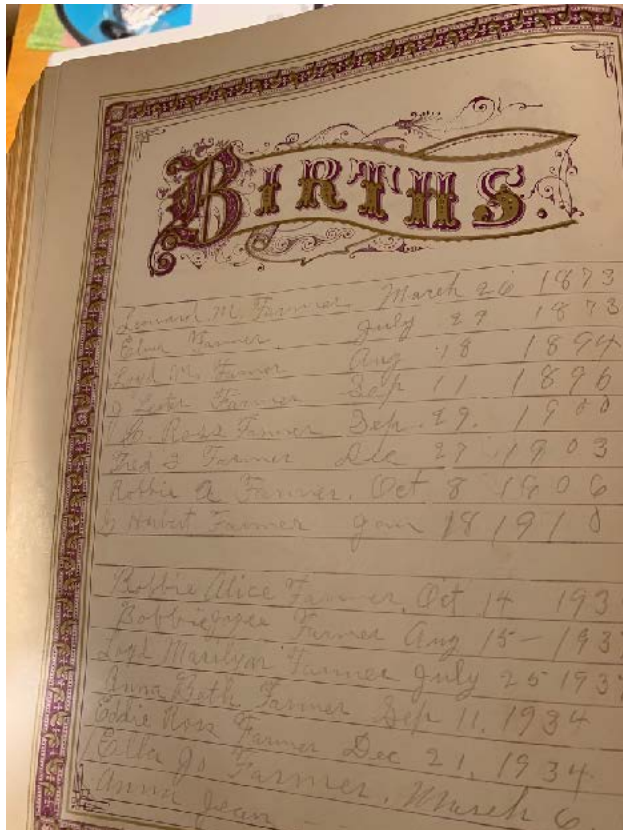 BIRTHS.
Leonard M. Farmer. March 26 1873
Elma Farmer July 27 1873
Loyd M. Farmer Aug 18 1894
J Lester Farmer Sep 11 1896
G. Ross Farmer Sep. 29. 1900
Fred I Farmer Dec 27 1903
Robbie A Farmer. Oct 8 1906
Hubert Farmer Jan 18 1910
Bobbie Alice Farmer. Oct 14 193
Bobbie Joyce Farmer Aug 15 – 193
Loyd Marilyn Farmer July 25 193
Anna Beth Farmer Sep 11, 1934
Eddie Ross Farmer Dec 21, 1934
Ella Jo Farmer. March 6
Anna Jean